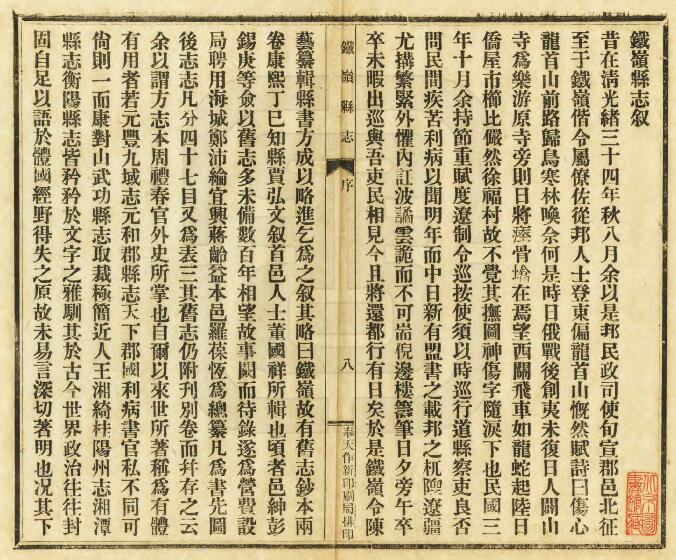 鐵嶺縣志叙
昔在淸光緖三十四年秋八月余以是邦民政司使旬宣郡邑北征
至于鐵嶺偕令屬僚佐從邦人士登東偏龍首山慨然賦詩曰傷心
龍首山前路歸鳥寒林喚奈何是時日俄戰後創夷未復日人關山
寺爲樂游原寺旁則日將瘞骨墖在焉望西關飛車如龍蛇起陸日
僑屋市櫛比儼然徐福村故不覺其撫圖神傷字隨淚下也民國三
年十月余持節重賦度遼制令巡按使須以時巡行道縣察吏良否
問民間疾苦利病以聞明年而中日新有盟書之載邦之杌隉遼疆
尤搆繁緊外懼內訌波譎雲詭而不可耑倪邊樓籌筆日夕旁午卒
卒未暇出巡與吾吏民相見今且將還都行有日矣於是鐵嶺令陳
鐵嶺縣志
序
八
奉天作新印刷局排印
藝纂輯縣書方成以略進乞爲之叙其略曰鐵嶺故有舊志鈔本兩
卷康熙丁巳知縣賈弘文叙首邑人士董國祥所輯也頃者邑紳彭
錫庚等僉以舊志多未備數百年相望故事闕而待錄遂爲營費設
局聘用海城鄭沛綸宜興蔣齡益本邑羅葆恆爲總纂凡爲書先圖
後志志凡分四十七目又爲表三其舊志仍附刋別卷而幷存之云
余以謂方志本周禮春官外史所掌也自爾以來世所著稱爲有體
有用者若元豐九域志元和郡縣志天下郡國利病書官私不同可
尙則一而康對山武功縣志取裁極簡近人王湘綺桂陽州志湘潭
縣志衡陽縣志皆矜矜於文字之雅馴其於古今世界政治往往封
固自足以語於體國經野得失之原故未易言深切著明也况其下